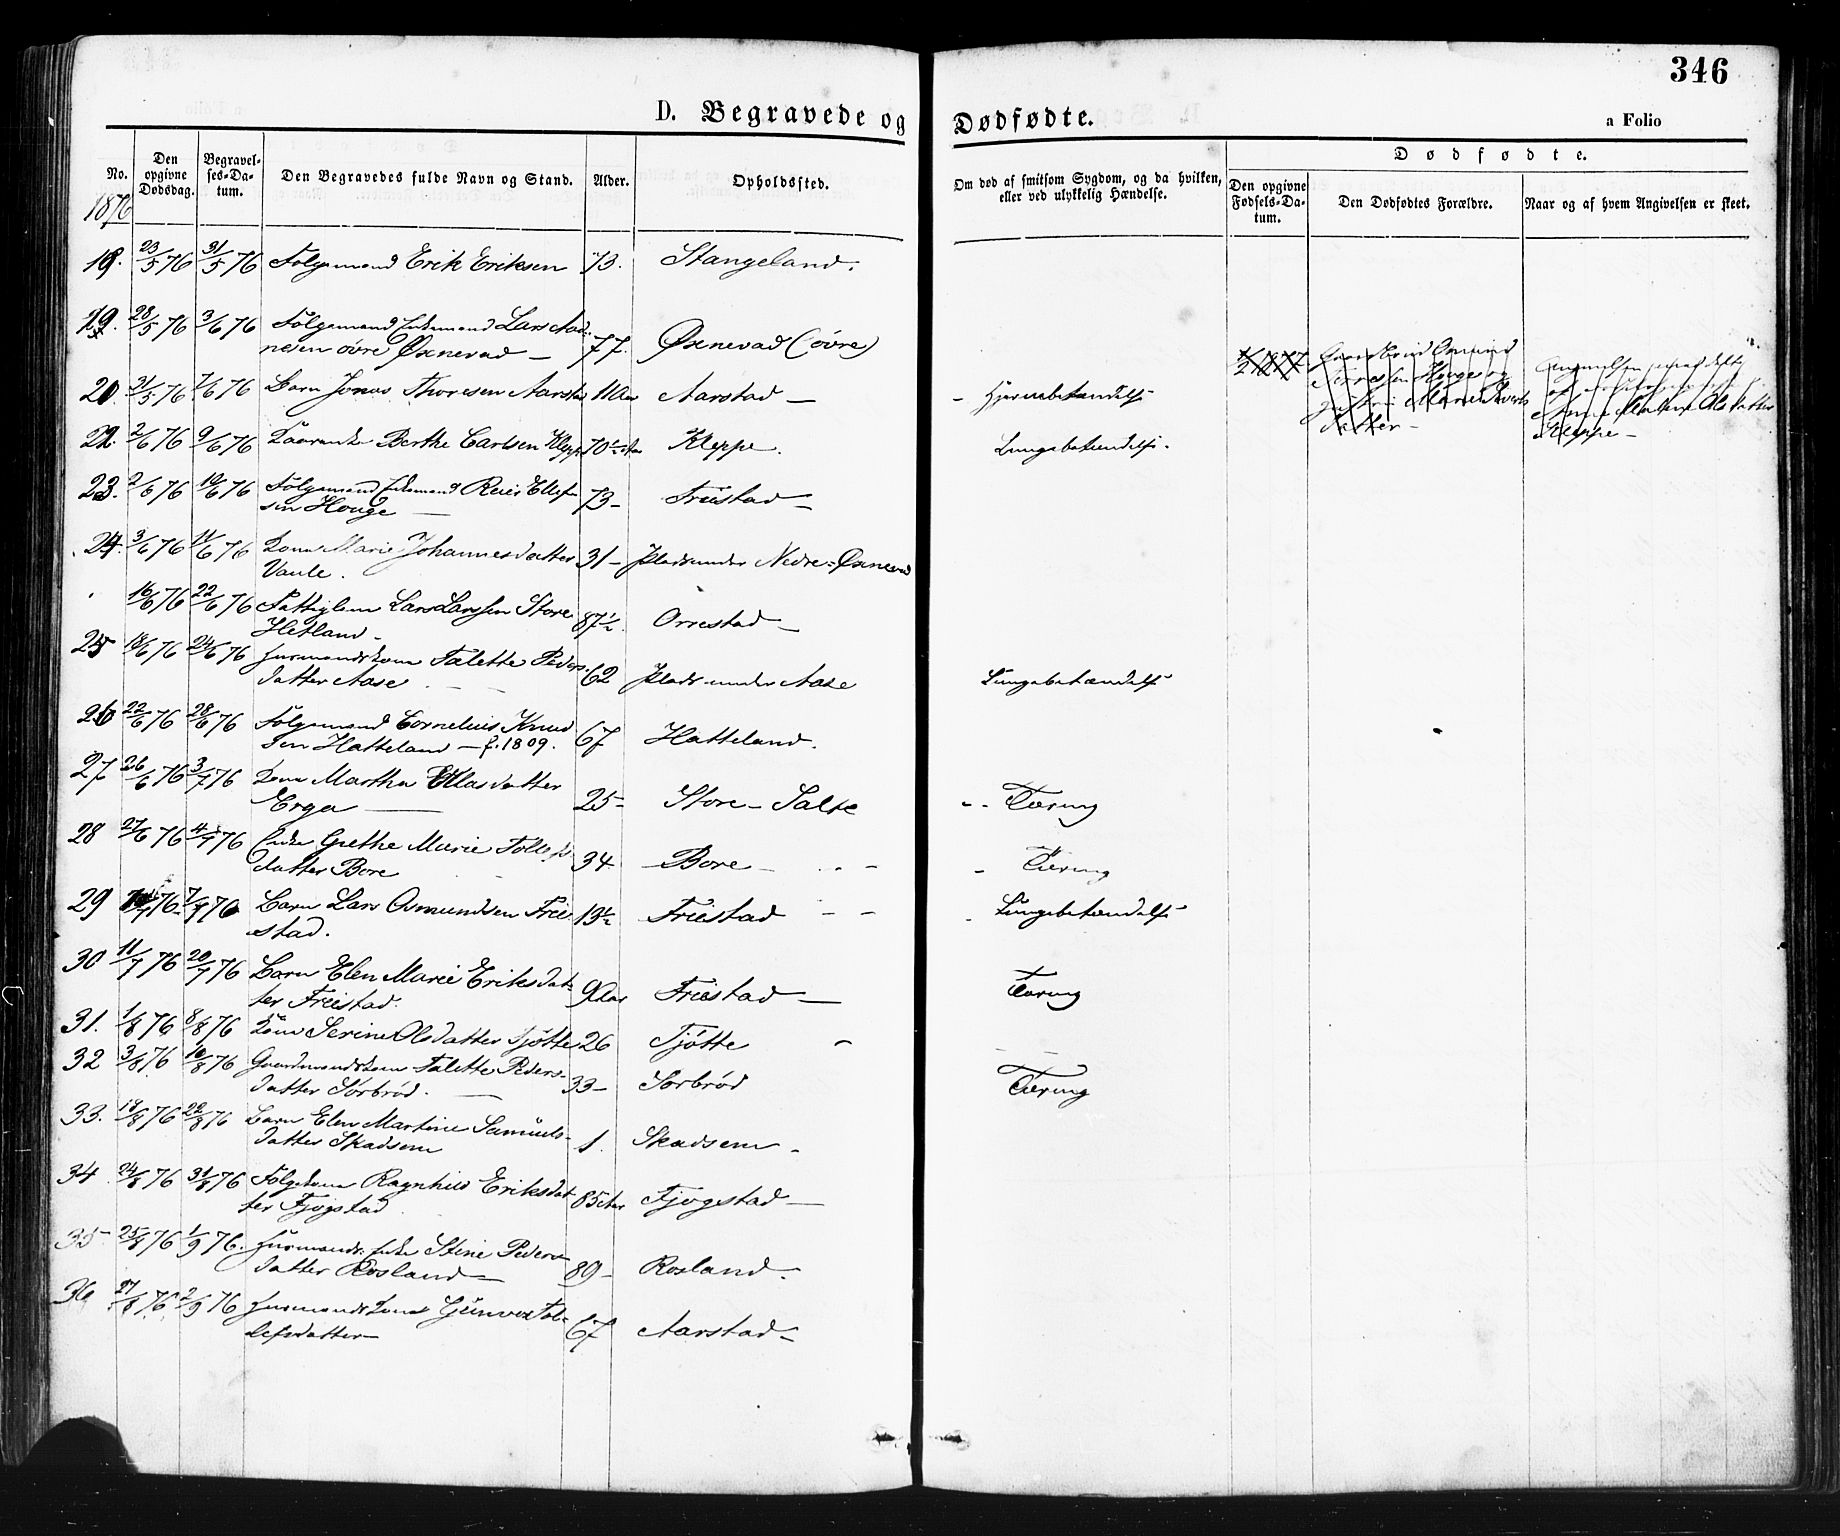 346
D. Begravede og Dødfødte.
a Folio
No.
Den opgivne Dødsdag.
Begravel-ses-Da-tum.
Den Begravedes fulde Navn og Stand.
Alder.
Opholdssted.
Om død af smitsom Sygdom, og da hvilken, eller ved ulykkelig Hændelse.
Dødfødte.
Den opgivne Fødsels-Da-tum.
Den Dødfødtes Forældre.
Naar og af hvem Angivelsen er skeet.
1876
23/5 76 31/5 76 Følgemand Erik Eriksen 73. Stangeland.
19. 28/5 76 3/6 76 Følgemand Enkemand Lars Aad-
nesen øvre Øxnevad — 77. Øxnevad (øvre)
31/5 76 7/6 76 Barn Jonas Thoresen Aarstad Aarstad — Hjernebetændelse
22. 2/6 76 9/6 76 Kaarenke Berthe Carlsen Kleppe 70½ Kleppe. Lungebetændelse.
23. 2/6 76 10/6 76 Følgemand Enkemand Reier Ellef-
sen Houge — 73 — Friestad —
24. 3/6 76 11/6 76 Kone Marie Johannesdatter
Vaule. 31 — Plads under Nedre-Øxnevad
16/6 76 22/6 76 Fattiglem Lars Larssen Store
Hetland — 87½. Orrestad —
25 18/6 76 24/6 76 Husmandskone Talette Peders-
datter Aase. — 62 Plads under Aase Lungebetændelse
26 22/6 76 28/6 76 Følgemand Cornelius Knud
sen Hatteland — f. 1809. 67 Hatteland.
27 26/6 76 3/7 76 Kone Martha Ellasdatter
Erga — 25 — Store-Salte Tæring
28 27/6 76 4/7 76 Enke Grethe Marie Tollefs
datter Bore 34 Bore — Tæring
29 7/7 76 Barn Lars Osmundsen Frie-
stad. 13½ Friestad Lungebetændelse
30 11/7 76 20/7 76 Barn Elen Marie Eriksdat-
ter Friestad. 9 Aar Friestad — Tæring
31. 1/8 76 8/8 76 Kone Serine Olsdatter Tjøtte 26 Tjøtte
32 3/8 76 10/8 76 Gaardmandskone Talette Peders-
datter Sørbrød. — 33 — Sørbrød Tæring
33. 18/8 76 22/8 76 Barn Elen Martine Samuels-
datter Skadsem 1. Skadsem —
34 24/8 76 31/8 76 Følgekone Ragnhild Eriksdat
ter Fjøgstad 85 Aar Fjogstad —
35 — 25/8 76 1/9 76. Husmands Enke Stine Peders
datter Rosland — 89 — Rosland.
36 27/8 76 2/9 76 Husmandskone Gunvor Tol-
lefsdatter — 67 Aarstad —